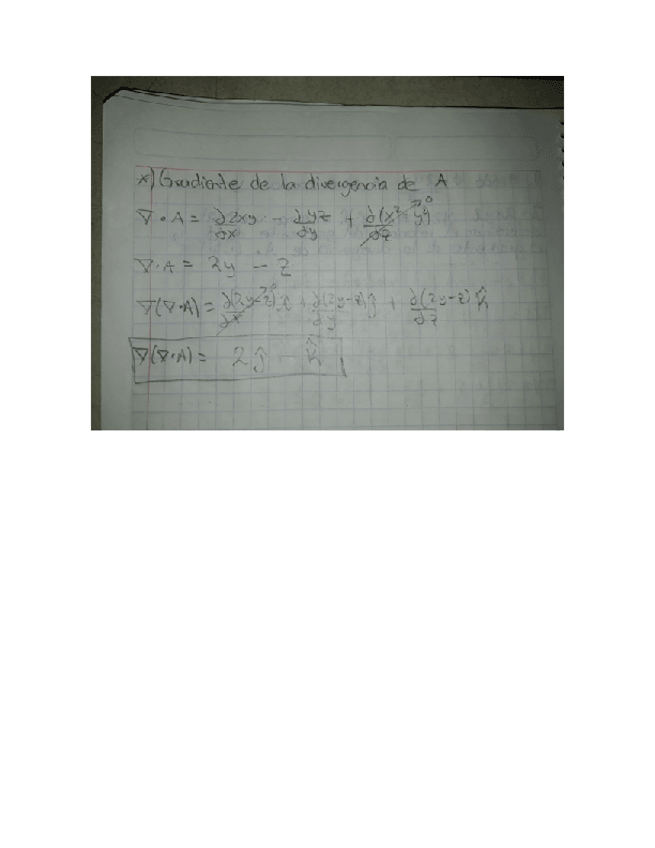 *) Gradiente de la divergencia de A
∇ • A = ∂2xy/∂x - ∂yz/∂y + ∂(x²-y)/∂z →0
∇•A = 2y - z
∇(∇•A) = ∂(2y-z)/∂x →0 î + ∂(2y-z)/∂y ĵ + ∂(2y-z)/∂z k̂
∇(∇•A) = 2ĵ - k̂